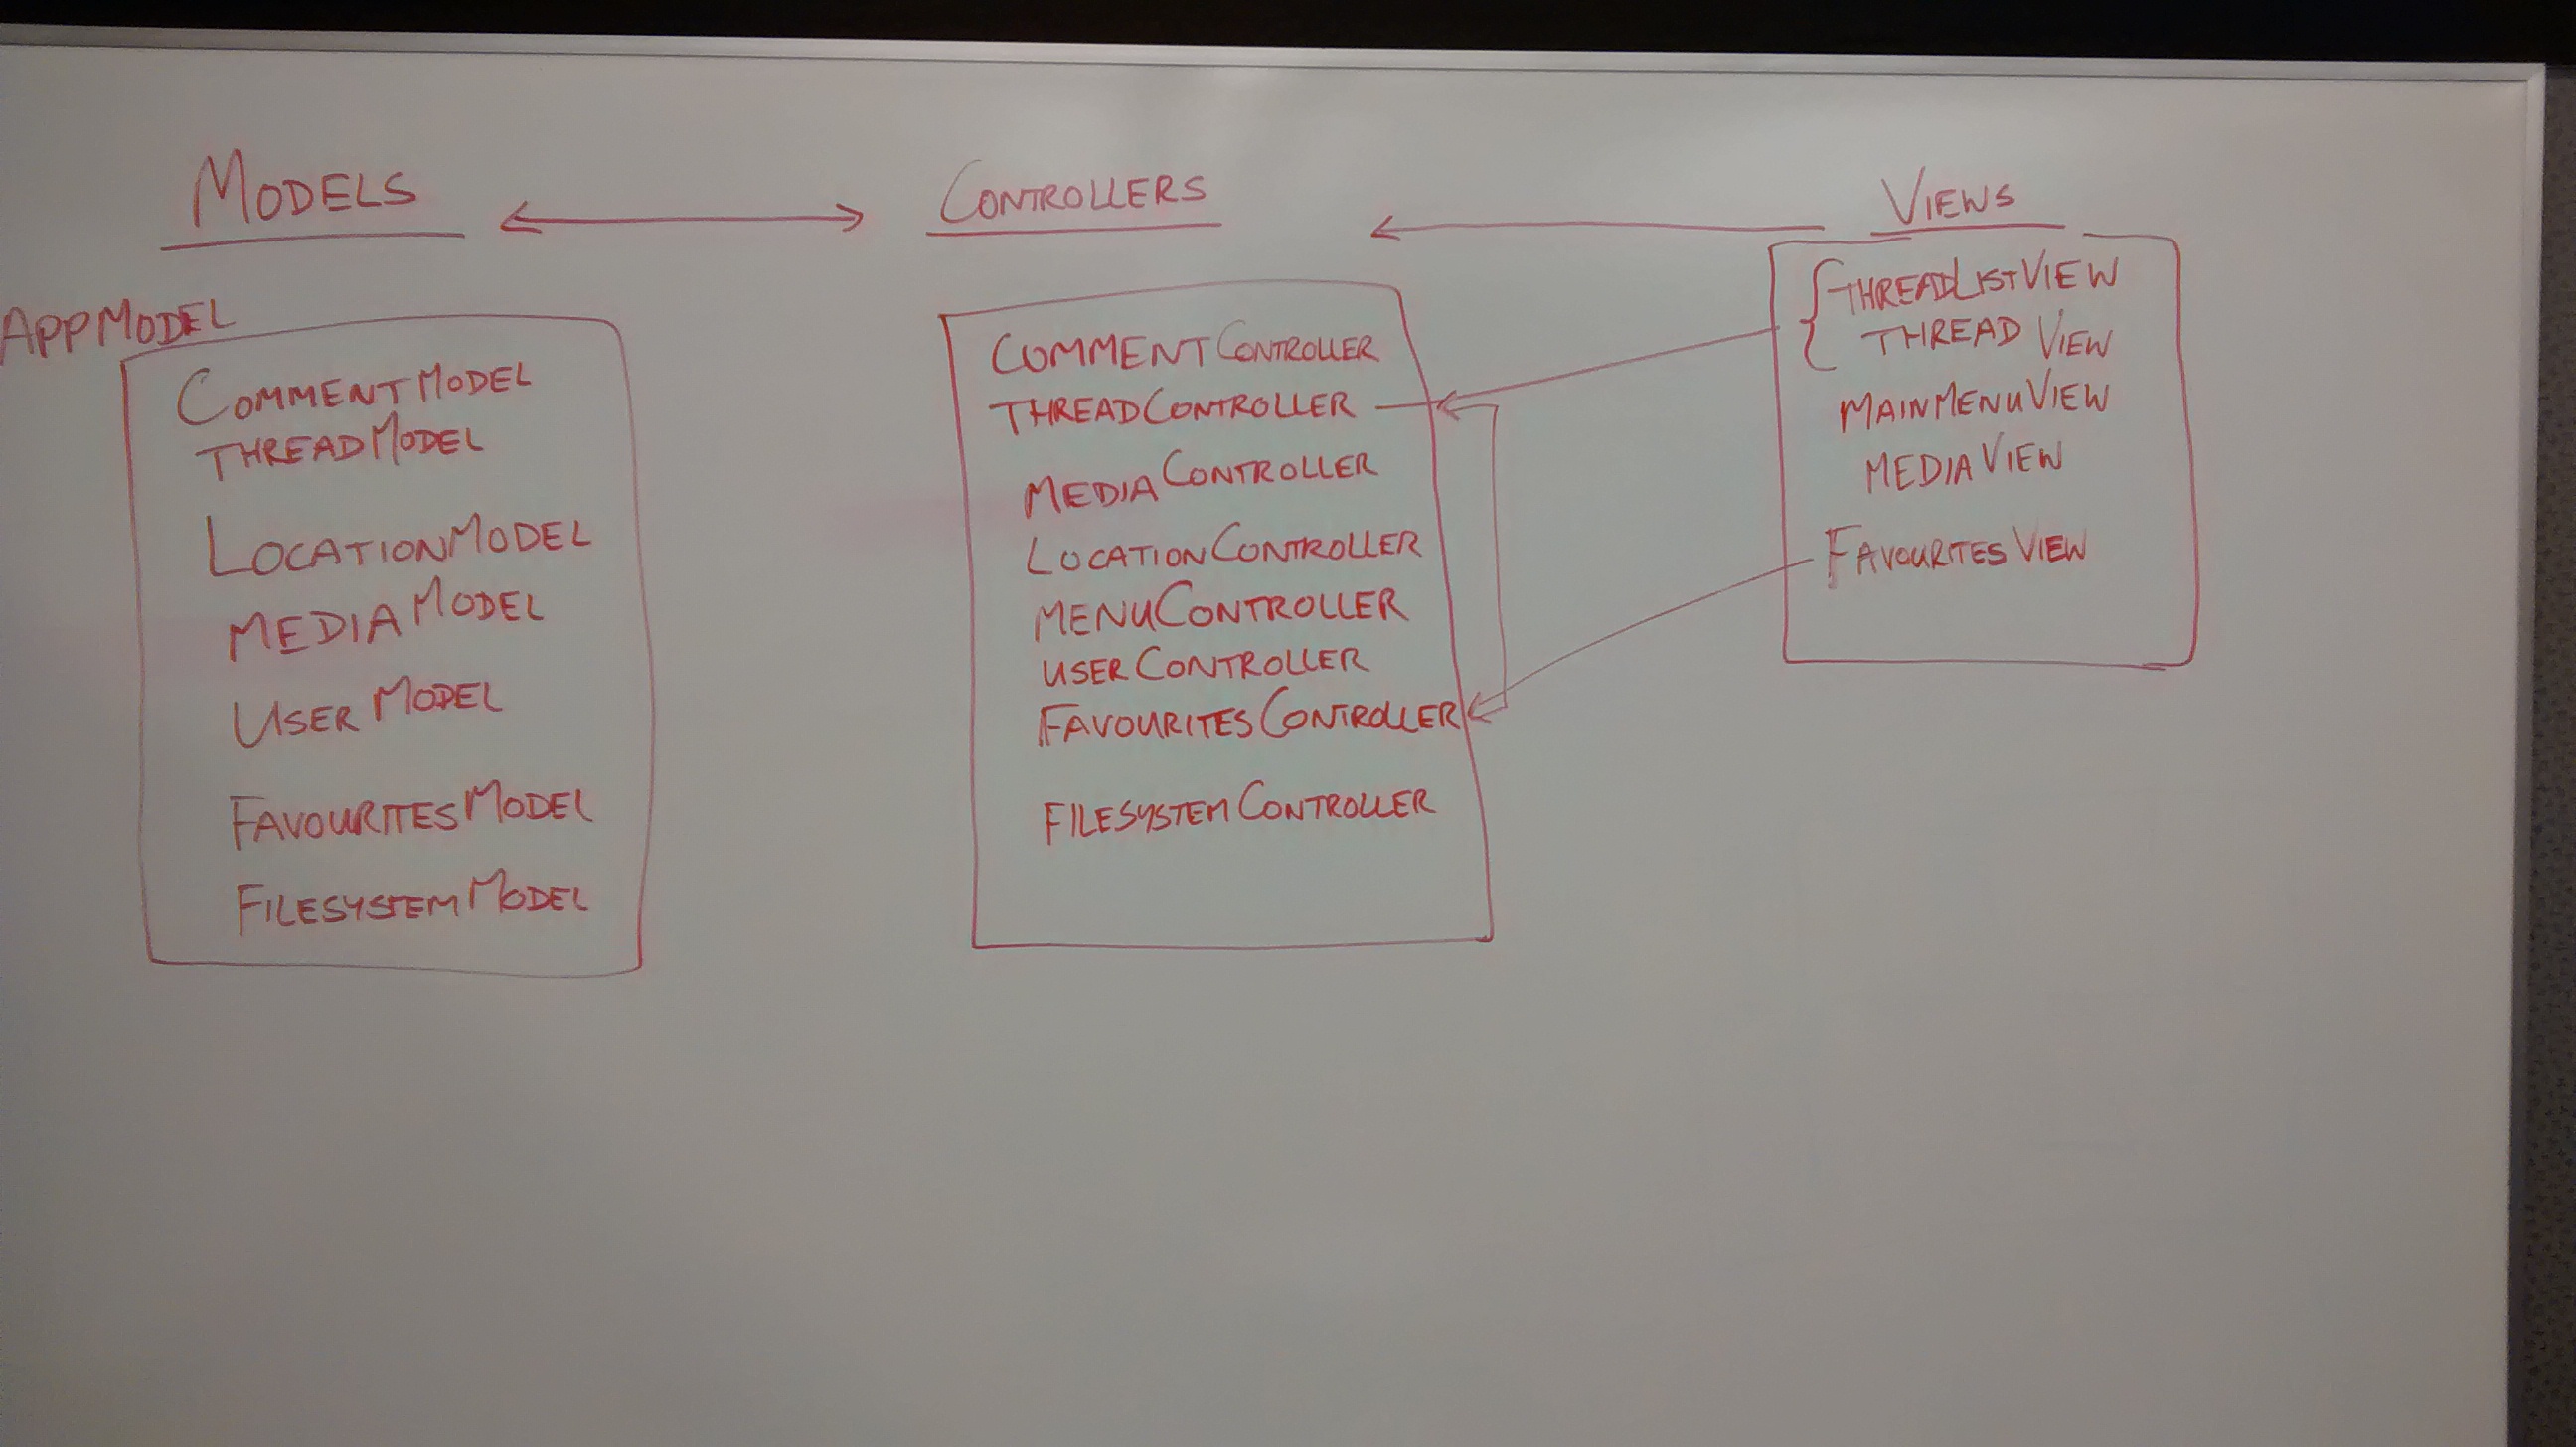 MODELS
CONTROLLERS
VIEWS
APPMODEL
COMMENTMODEL
THREADMODEL
LOCATIONMODEL
MEDIAMODEL
USERMODEL
FAVOURITESMODEL
FILESYSTEMMODEL
COMMENTCONTROLLER
THREADCONTROLLER
MEDIACONTROLLER
LOCATIONCONTROLLER
MENUCONTROLLER
USERCONTROLLER
FAVOURITESCONTROLLER
FILESYSTEMCONTROLLER
THREADLISTVIEW
THREAD VIEW
MAINMENUVIEW
MEDIAVIEW
FAVOURITESVIEW